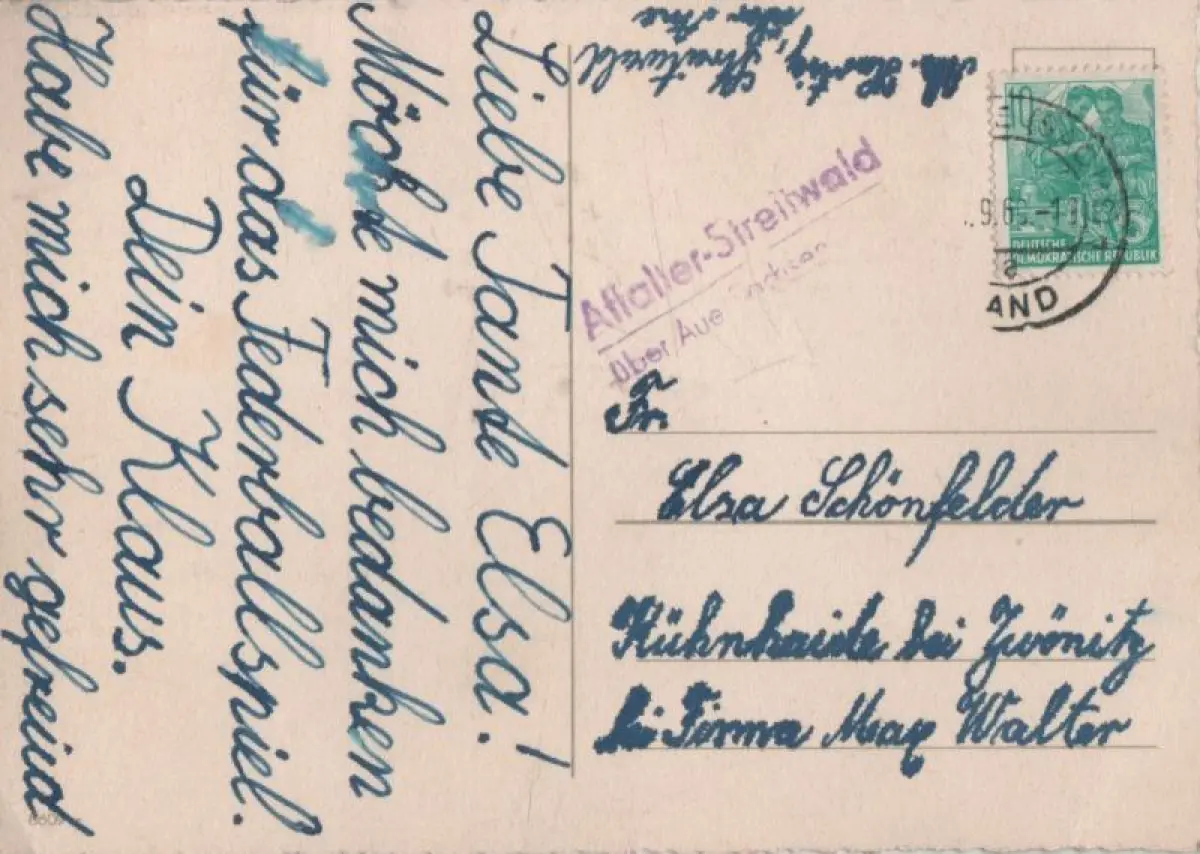 Liebe Tante Elsa!
Möchte mich bedanken
für das Federballspiel.
Dein Klaus.
Habe mich sehr gefreud
Streitwald
über Aue
Affalter-Streitwald
über Aue
10
5
DEUTSCHE
DEMOKRATISCHE REPUBLIK
LAND
Fr
Elsa Schönfelder
Kühnhaide bei Zwönitz
bei Firma Max Walter